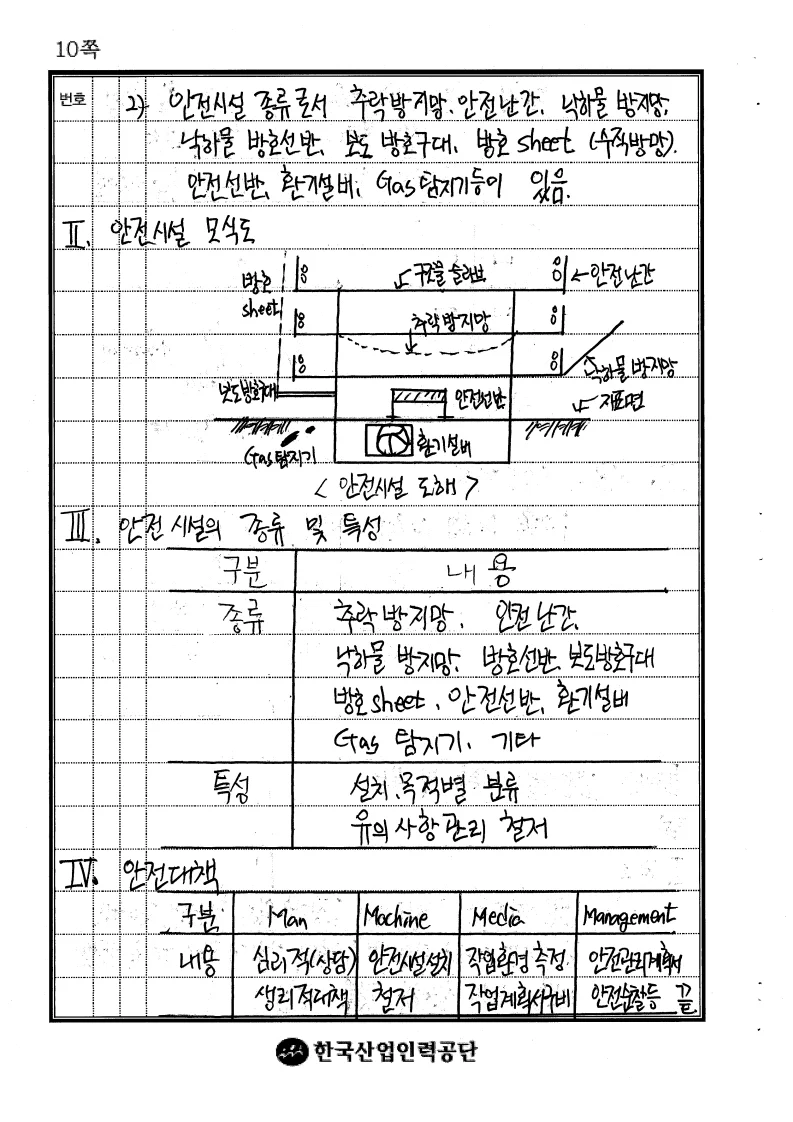 10쪽
번호 2) 안전시설 종류로서 추락방지망, 안전난간, 낙하물 방지망,
낙하물 방호선반, 보도 방호구대, 방호 sheet (수직방망),
안전선반, 환기설비, Gas탐지기등이 있음.
Ⅱ. 안전시설 모식도
방호 sheet
구조물 슬라브
안전난간
추락방지망
낙하물 방지망
보도방호구대
안전선반
지표면
Gas탐지기
환기설비
< 안전시설 도해 >
Ⅲ. 안전시설의 종류 및 특성
구분 내용
종류 추락방지망, 안전난간,
낙하물 방지망, 방호선반, 보도방호구대
방호sheet, 안전선반, 환기설비
Gas 탐지기, 기타
특성 설치, 목적별 분류
유의사항관리 철저
Ⅳ. 안전대책
구분 Man Machine Media Management
내용 심리적(상담) 안전시설설치 작업환경측정 안전관리계획서
생리적대책 철저 작업계획서구비 안전순찰등 끝
한국산업인력공단